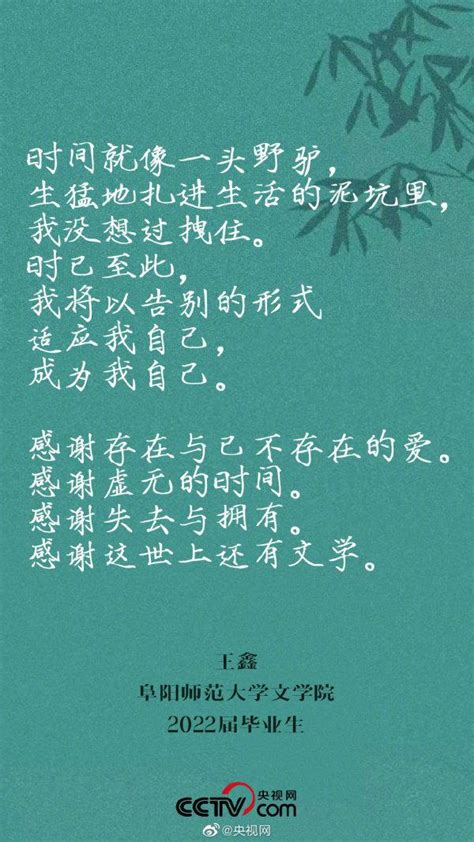 时间就像一头野驴，
生猛地扎进生活的泥坑里，
我没想过拽住。
时已至此，
我将以告别的形式
适应我自己，
成为我自己。
感谢存在与已不存在的爱。
感谢虚无的时间。
感谢失去与拥有。
感谢这世上还有文学。
王鑫
阜阳师范大学文学院
2022届毕业生
CCTV 央视网
com
@央视网